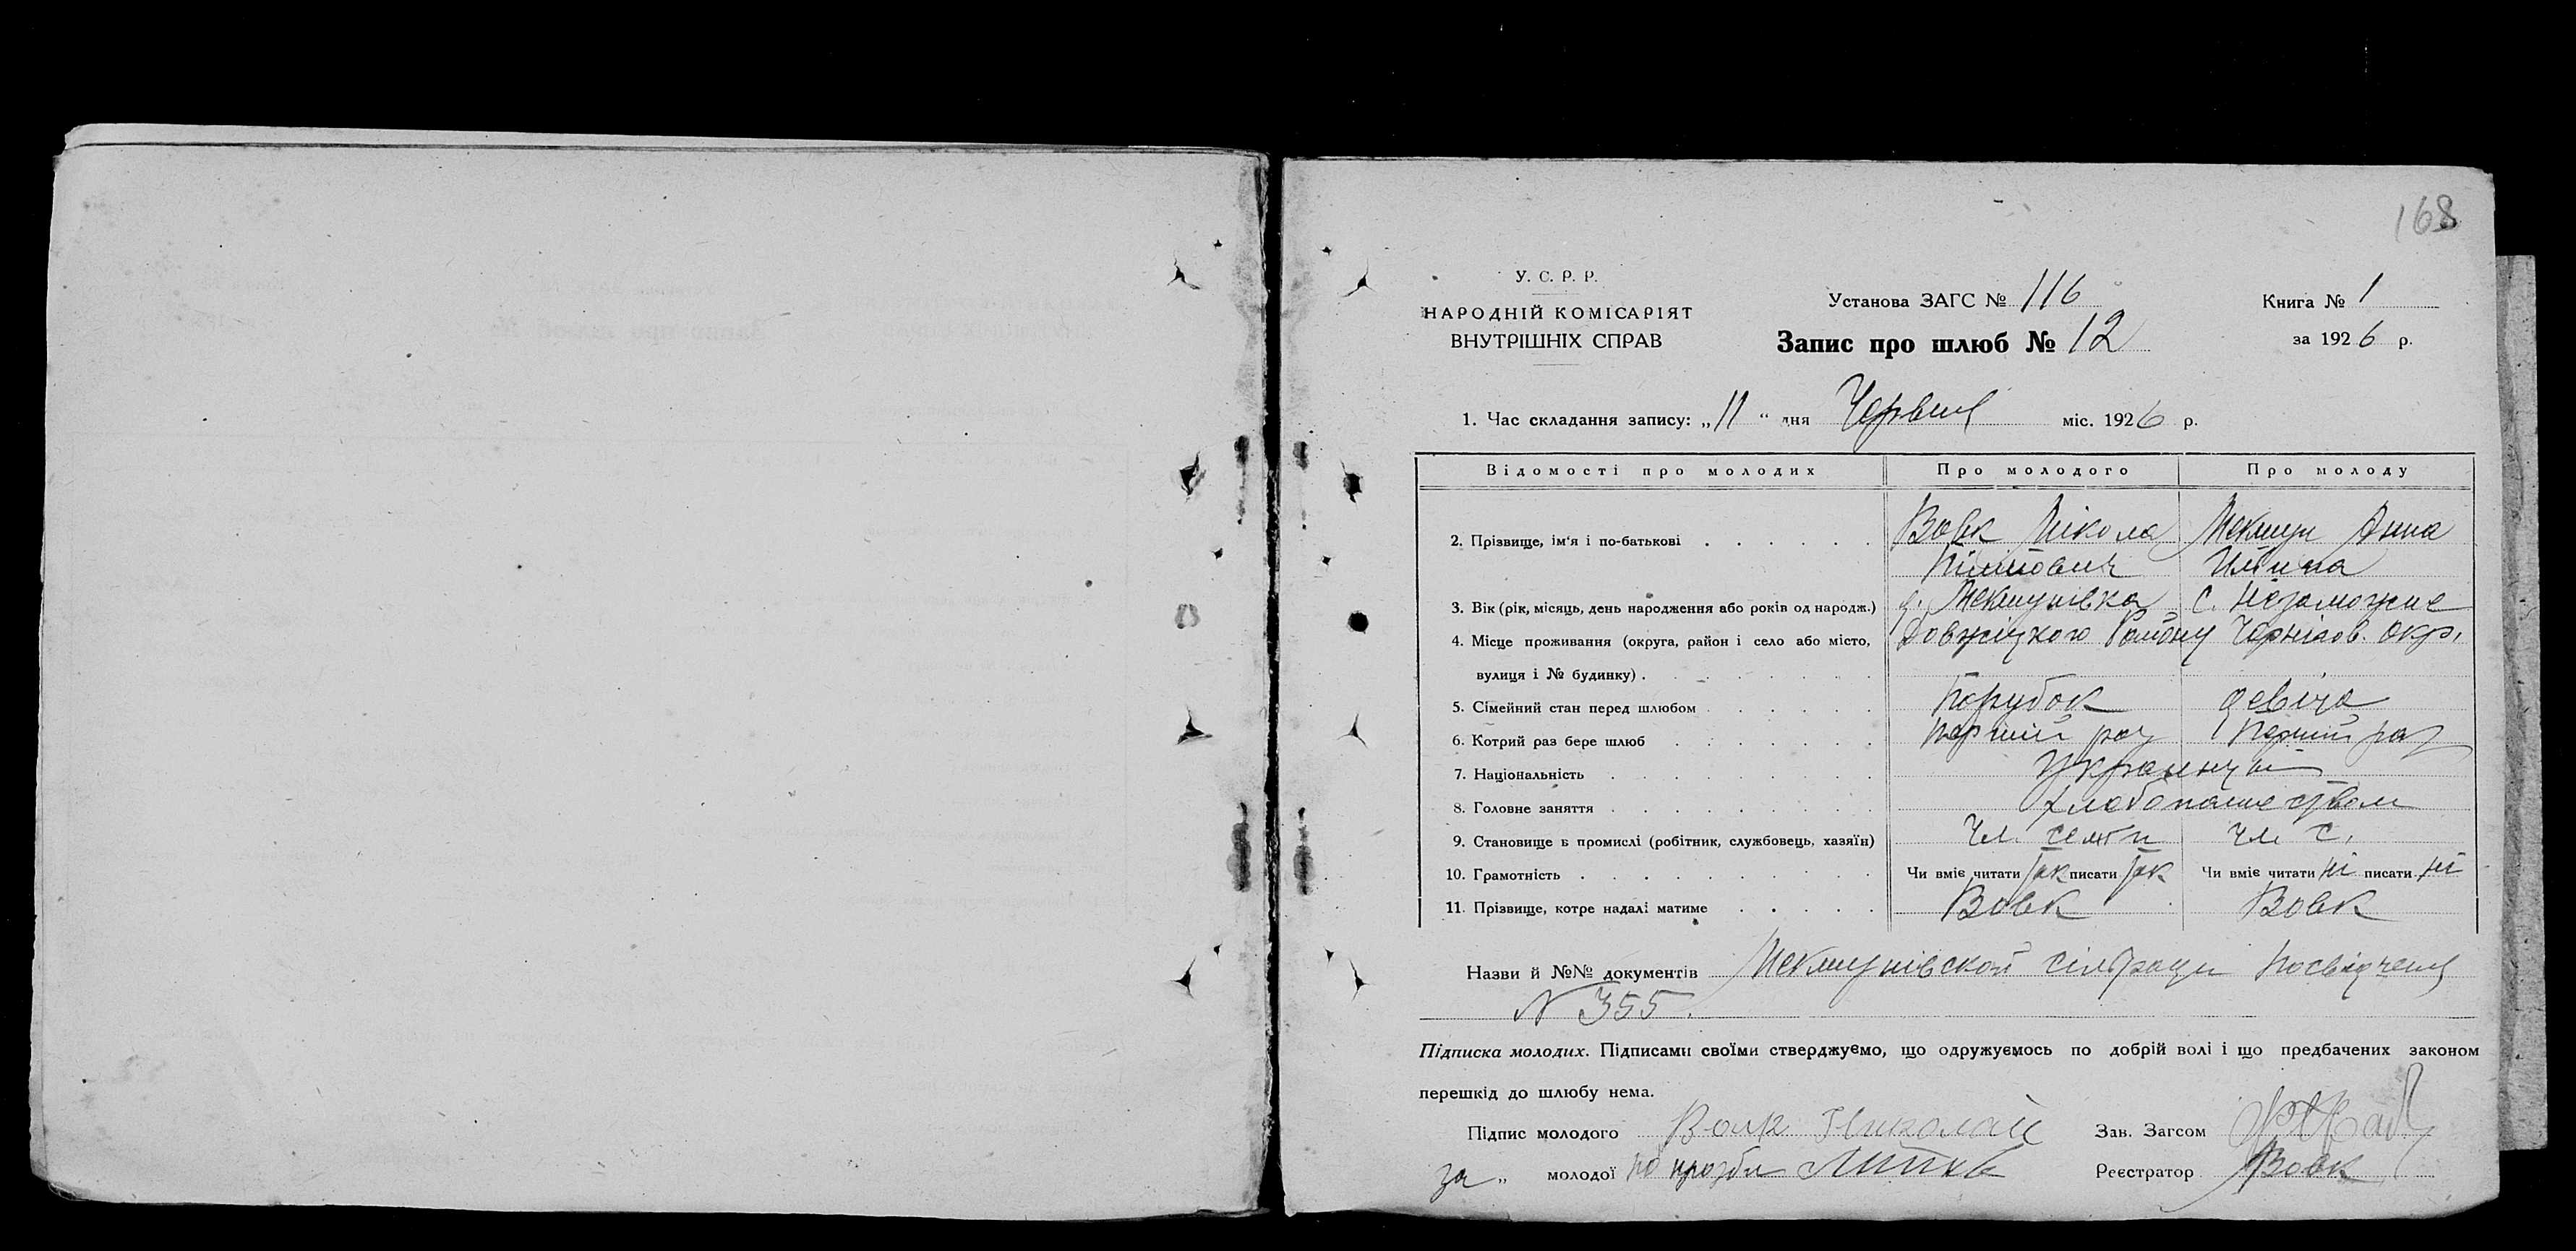 168
У. С. Р. Р.
НАРОДНІЙ КОМІСАРІЯТ
ВНУТРІШНІХ СПРАВ
Установа ЗАГС № 116
Запис про шлюб № 12
Книга № 1
за 1926 р.
1. Час складання запису: „11“ дня Червня міс. 1926 р.
Відомості про молодих Про молодого Про молоду
2. Прізвище, ім'я і по-батькові Вовк Мікола Анна
3. Вік (рік, місяць, день народження або років од народж.) с. Незаможне
4. Місце проживання (округа, район і село або місто, Району Чернігов. Окр.
вулиця і № будинку)
5. Сімейний стан перед шлюбом Парубок девіца
6. Котрий раз бере шлюб перший раз перший раз
7. Національність Украинци
8. Головне заняття хлебопашеством
9. Становище в промислі (робітник, службовець, хазяїн) Чл. семти чл. с.
10. Грамотність Чи вміє читати так писати так Чи вміє читати ні писати ні
11. Прізвище, котре надалі матиме Вовк Вовк
Назви й №№ документів сільради посвідчення
N 355.
Підписка молодих. Підписами своїми стверджуємо, що одружуємось по добрій волі і що предбачених законом
перешкід до шлюбу нема.
Підпис молодого Волк Николай Зав. Загсом
за „ молодої по прозбі Реєстратор Вовк